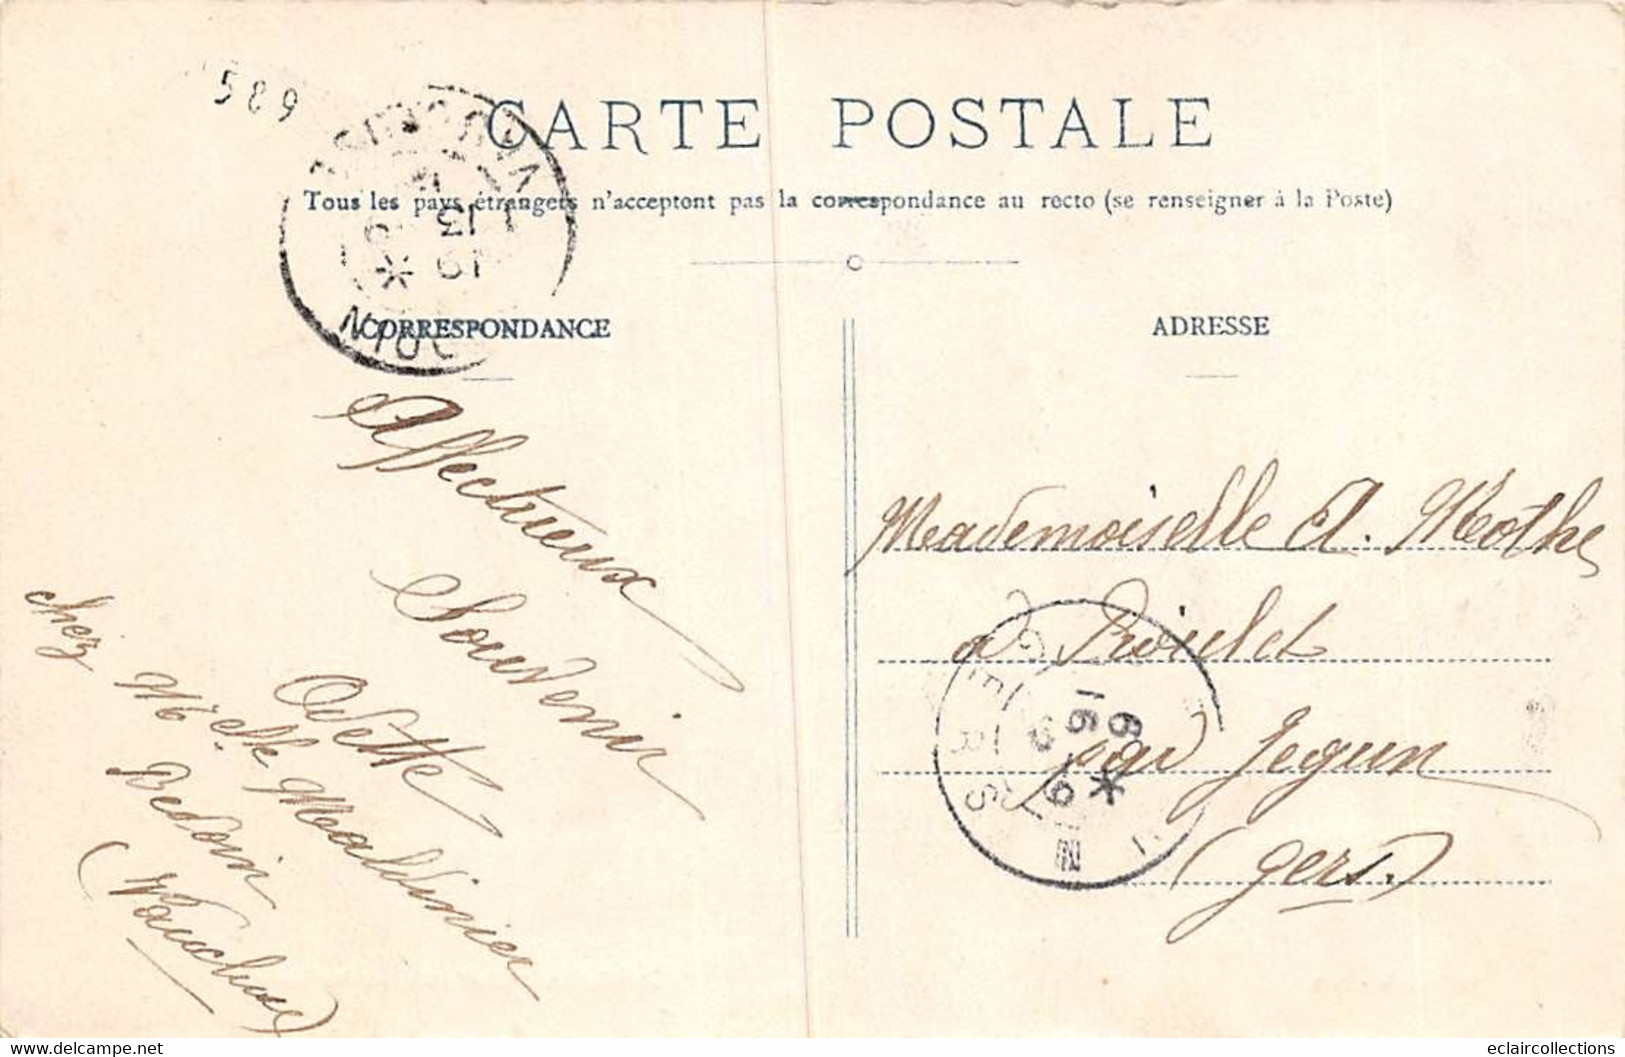 589
CARTE POSTALE
Tous les pays étrangers n'acceptent pas la correspondance au recto (se renseigner à la Poste)
CORRESPONDANCE
ADRESSE
Affectueux
Souvenir
Odette
chez Melle Maldinier
Bedoin
(Vaucluse)
Mademoiselle A. Mothe
a
par Jegun
(Gers.)
GERS
www.delcampe.net
eclaircollections